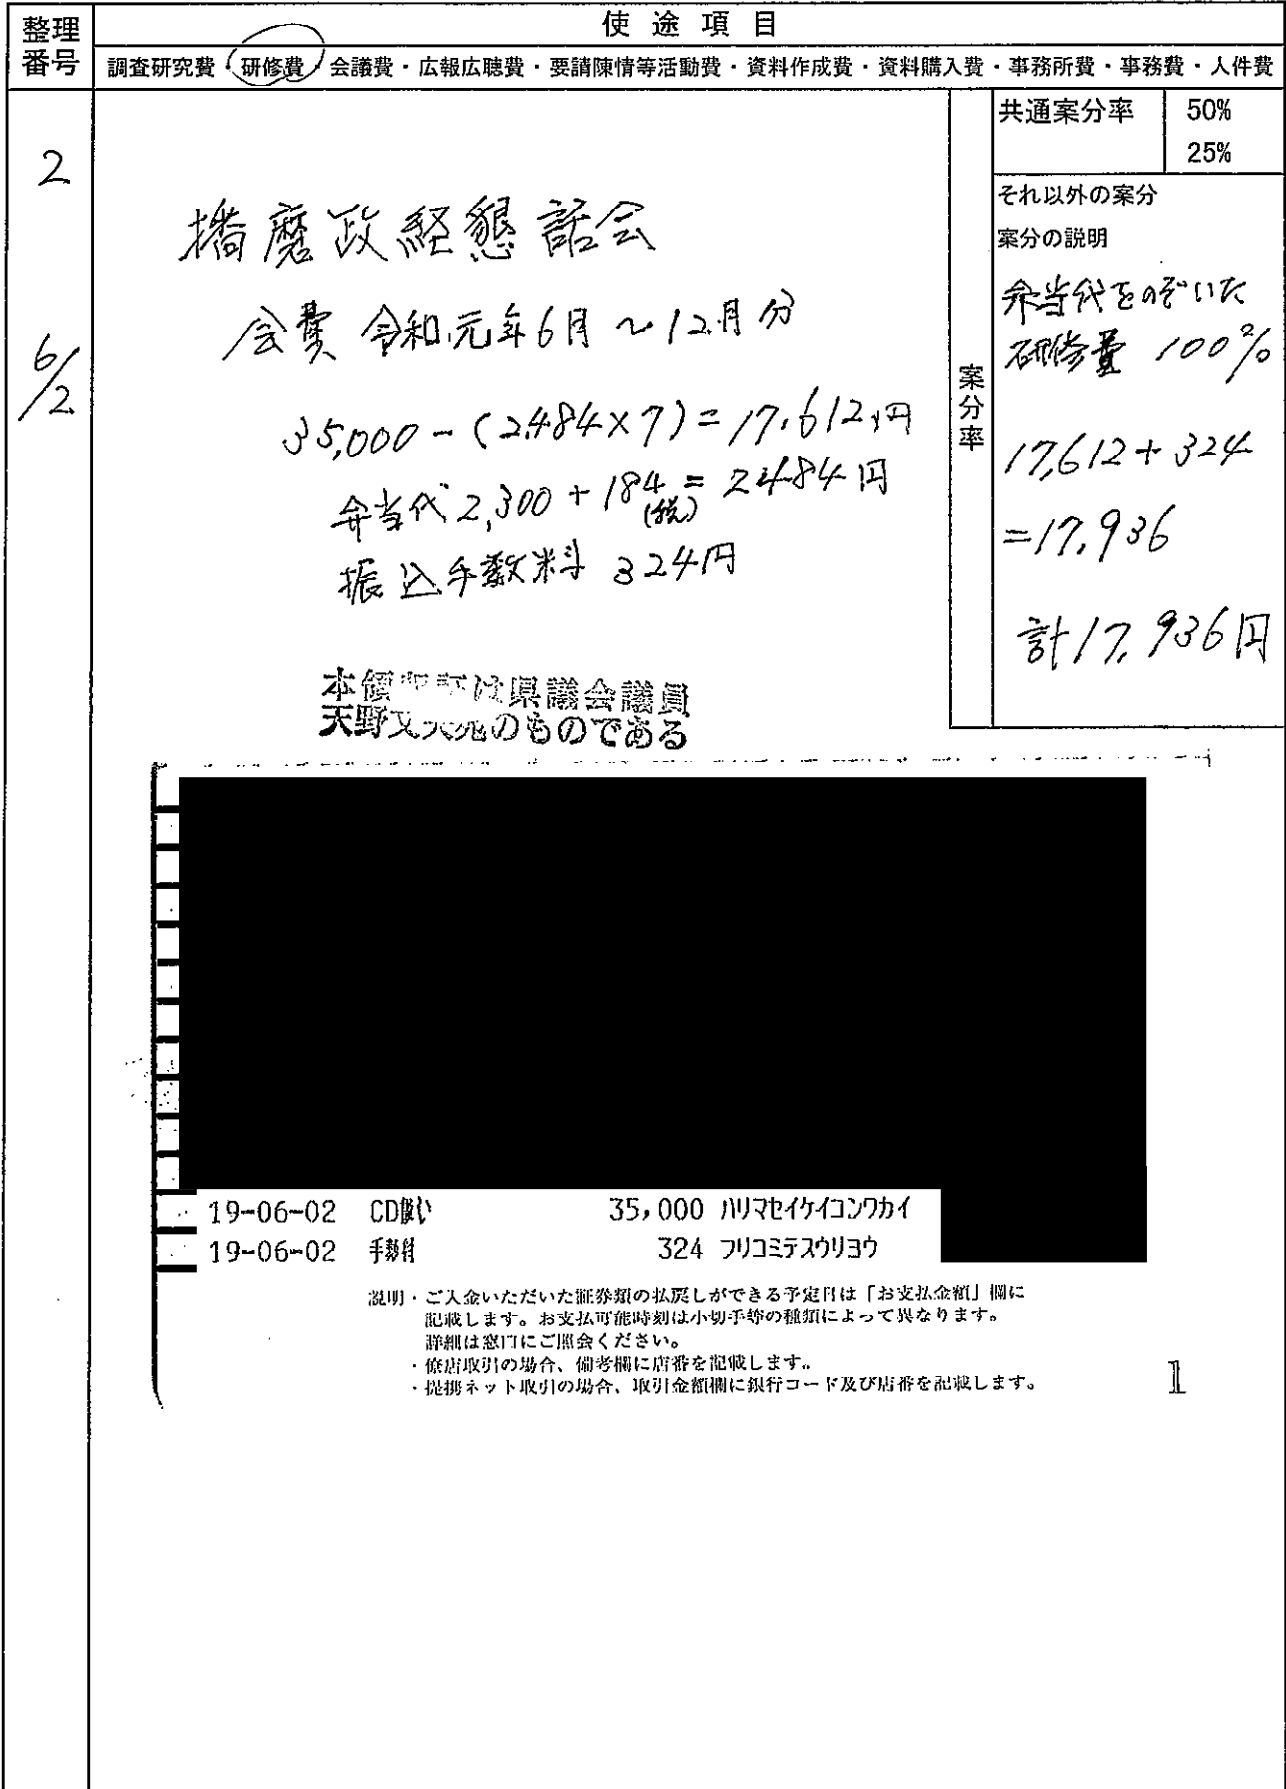 整理番号
使途項目
調査研究費・研修費・会議費・広報広聴費・要請陳情等活動費・資料作成費・資料購入費・事務所費・事務費・人件費
2
6/2
播磨政経懇話会
会費 令和元年6月～12月分
35,000-(2,484×7)=17,612円
弁当代2,300+184=2484円
(税)
振込手数料 324円
案分率
共通案分率 50%
25%
それ以外の案分
案分の説明
弁当代をのぞいた
研修費 100%
17,612+324
=17,936
計17,936円
本領 は県議会議員
天野文 のものである
19-06-02 CD扱い 35,000 ハリマセイケイコンワカイ
19-06-02 手数料 324 フリコミテスウリヨウ
説明・ご入金いただいた証券類の払戻しができる予定日は「お支払金額」欄に
記載します。お支払可能時刻は小切手等の種類によって異なります。
詳細は窓口にご照会ください。
・僚店取引の場合、備考欄に店番を記載します。
・提携ネット取引の場合、取引金額欄に銀行コード及び店番を記載します。
1